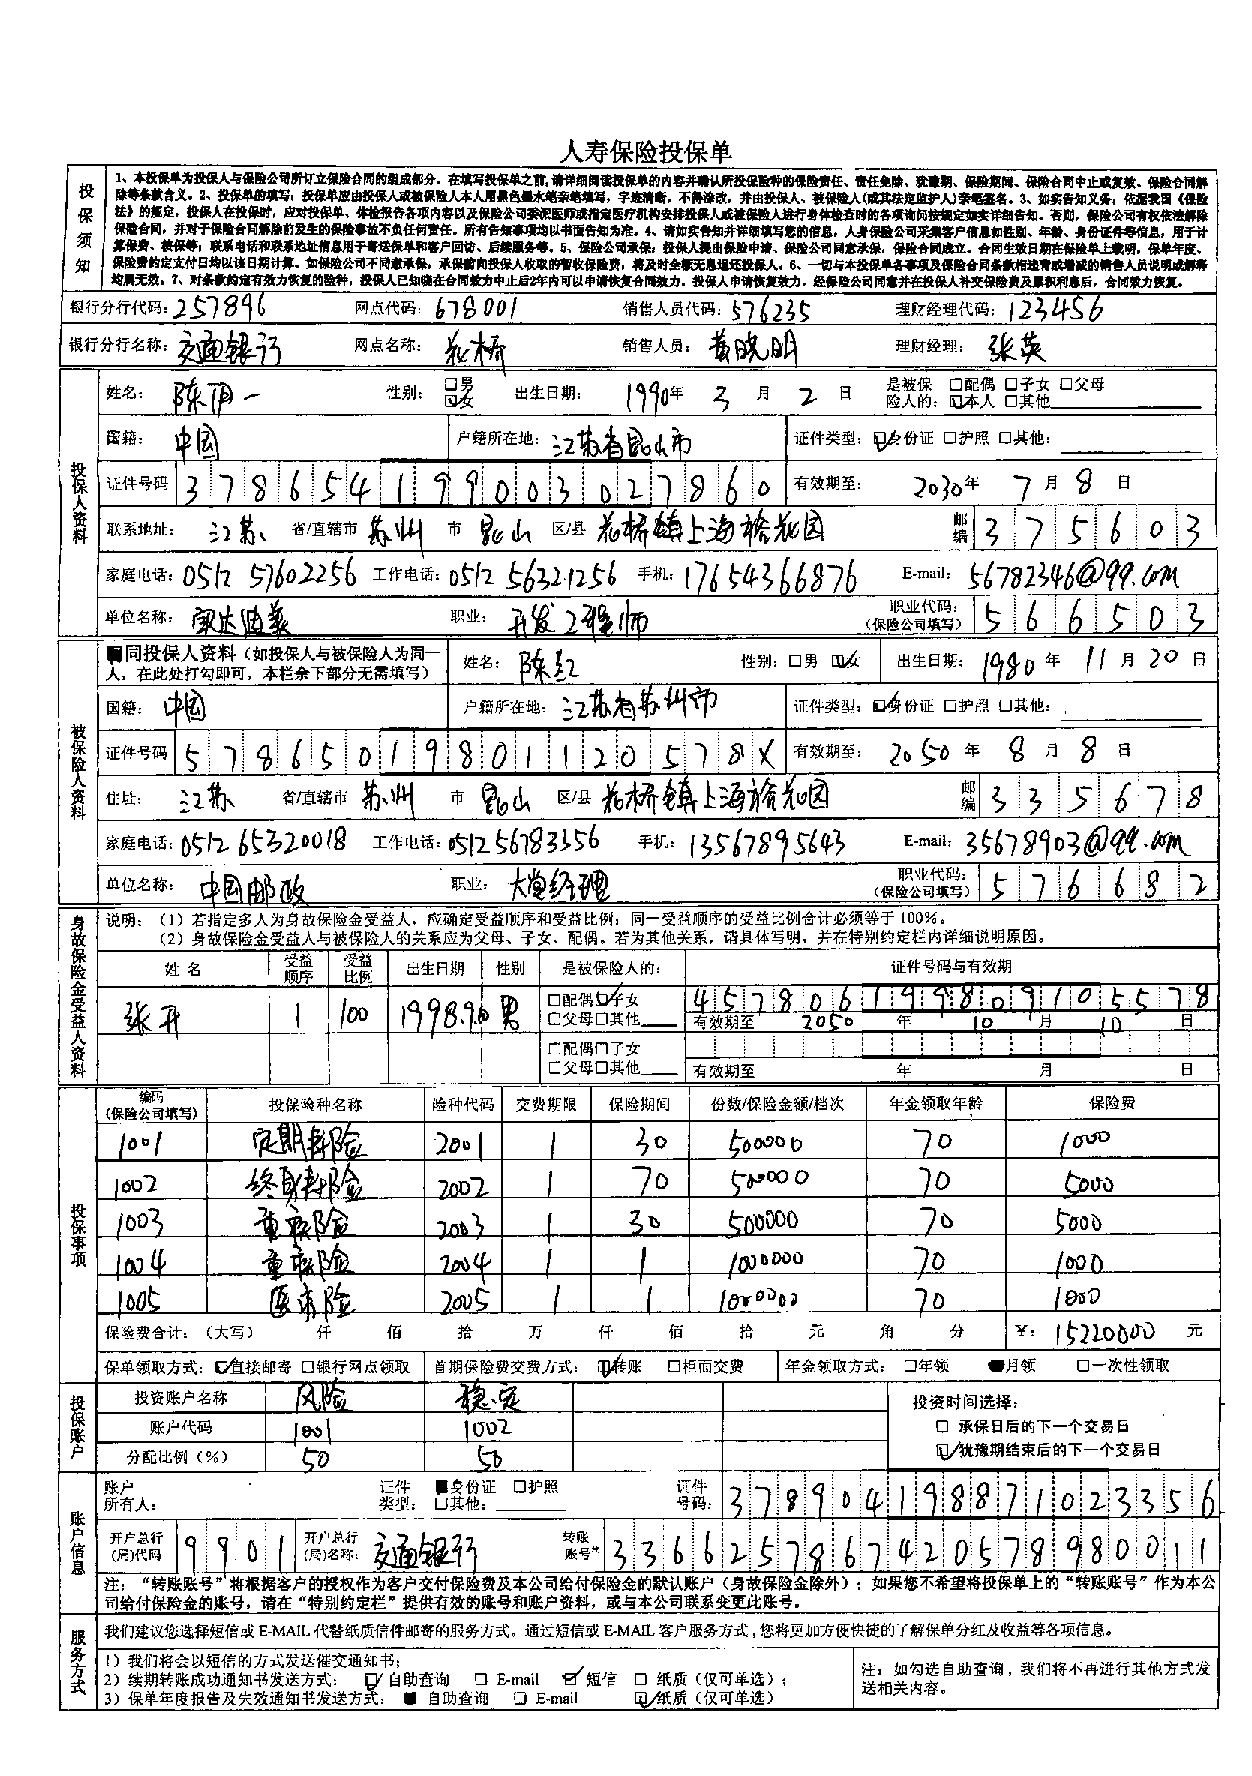 人寿保险投保单
投保须知
1、本投保单为投保人与保险公司所订立保险合同的组成部分。在填写投保单之前,请详细阅读投保单的内容并确认所投保险种的保险责任、责任免除、犹豫期、保险期间、保险合同中止或复效、保险合同解
除等条款含义。2、投保单的填写:投保单应由投保人或被保险人本人用黑色墨水笔亲笔填写,字迹清晰,不得涂改,并由投保人、被保险人(或其法定监护人)亲笔签名。3、如实告知义务:依据我国《保险
法》的规定,投保人在投保时,应对投保单、体检报告各项内容以及保险公司委派医师或指定医疗机构安排投保人或被保险人进行身体检查时的各项询问按规定如实详细告知。否则,保险公司有权依法解除
保险合同,并对于保险合同解除前发生的保险事故不负任何责任。所有告知事项均以书面告知为准。4、请如实告知并详细填写您的信息,人身保险公司采集客户信息如性别、年龄、身份证件等信息,用于计
算保费、核保等;联系电话和联系地址信息用于寄送保单和客户回访、后续服务等。5、保险公司承保:投保人提出保险申请、保险公司同意承保,保险合同成立。合同生效日期在保险单上载明,保单年度、
保险费约定支付日均以该日期计算。如保险公司不同意承保,承保前向投保人收取的暂收保险费,将及时全额无息退还投保人。6、一切与本投保单各事项及保险合同条款相违背或增减的销售人员说明或解释
均属无效。7、对条款约定有效力恢复的险种,投保人已知晓在合同效力中止后2年内可以申请恢复合同效力。投保人申请恢复效力,经保险公司同意并在投保人补交保险费及累积利息后,合同效力恢复。
银行分行代码:257896 网点代码:678001 销售人员代码:576235 理财经理代码:123456
银行分行名称:交通银行 网点名称:花桥 销售人员:黄晓明 理财经理:张英
投保人资料
姓名:陈丽一 性别:□男 ☑女 出生日期:1990年3月2日 是被保险人的:□配偶□子女□父母 ☑本人□其他
国籍:中国 户籍所在地:江苏省昆山市 证件类型:☑身份证□护照□其他:
证件号码 378654199003027860 有效期至:2030年7月8日
联系地址:江苏 省/直辖市 苏州 市 昆山 区/县 花桥镇上海裕花园 邮编 375603
家庭电话:0512 57602256 工作电话:0512 56321256 手机:17654366876 E-mail:56782346@qq.com
单位名称: 职业:开发工程师 职业代码:(保险公司填写)566503
被保险人资料
■同投保人资料(如投保人与被保险人为同一人,在此处打勾即可,本栏余下部分无需填写) 姓名:陈红 性别:□男☑女 出生日期:1980年11月20日
国籍:中国 户籍所在地:江苏省苏州市 证件类型:☑身份证□护照□其他:
证件号码 57865019801120578X 有效期至:2050年8月8日
住址:江苏 省/直辖市 苏州 市 昆山 区/县 花桥镇上海裕花园 邮编 335678
家庭电话:0512 65320018 工作电话:0512 56783356 手机:13567895643 E-mail:35678903@qq.com
单位名称:中国邮政 职业:大堂经理 职业代码:(保险公司填写)576682
身故保险金受益人资料
说明:(1)若指定多人为身故保险金受益人,应确定受益顺序和受益比例;同一受益顺序的受益比例合计必须等于100%。
(2)身故保险金受益人与被保险人的关系应为父母、子女、配偶,若为其他关系,请具体写明,并在特别约定栏内详细说明原因。
姓名 受益顺序 受益比例 出生日期 性别 是被保险人的: 证件号码与有效期
张开 1 100 1998.9.10 男 □配偶☑子女 □父母□其他 457806199809105578
有效期至 2050 年 10 月 10 日
□配偶□子女
□父母□其他 有效期至 年 月 日
投保事项
编码(保险公司填写) 投保险种名称 险种代码 交费期限 保险期间 份数/保险金额/档次 年金领取年龄 保险费
1001 定期寿险 2001 1 30 500000 70 1000
1002 终身寿险 2002 1 70 500000 70 5000
1003 重疾险 2003 1 30 500000 70 5000
1004 重疾险 2004 1 1 1000000 70 1000
1005 医疗险 2005 1 1 1000000 70 1000
保险费合计:(大写) 仟 佰 拾 万 仟 佰 拾 元 角 分 ¥:15220000 元
保单领取方式:☑直接邮寄□银行网点领取 首期保险费交费方式:☑转账□柜面交费 年金领取方式:□年领 ■月领 □一次性领取
投保账户
投资账户名称 风险 稳定 投资时间选择:
账户代码 1001 1002 □ 承保日后的下一个交易日
分配比例(%) 50 50 ☑ 犹豫期结束后的下一个交易日
账户信息
账户所有人: 证件类型:■身份证 □护照 □其他: 证件号码:378904198871023356
开户总行(局)代码 9901 开户总行(局)名称:交通银行 转账账号* 3366257867420578980011
注:“转账账号”将根据客户的授权作为客户交付保险费及本公司给付保险金的默认账户(身故保险金除外);如果您不希望将投保单上的“转账账号”作为本公
司给付保险金的账号,请在“特别约定栏”提供有效的账号和账户资料,或与本公司联系变更此账号。
服务方式
我们建议您选择短信或E-MAIL代替纸质信件邮寄的服务方式。通过短信或E-MAIL客户服务方式,您将更加方便快捷的了解保单分红及收益等各项信息。
1)我们将会以短信的方式发送催交通知书;
2)续期转账成功通知书发送方式:☑自助查询 □ E-mail ☑短信 □ 纸质(仅可单选);
3)保单年度报告及失效通知书发送方式:■ 自助查询 □ E-mail ☑纸质(仅可单选)
注:如勾选自助查询,我们将不再进行其他方式发
送相关内容。